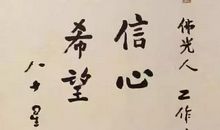 佛光人 工作
信心
希望
八十星